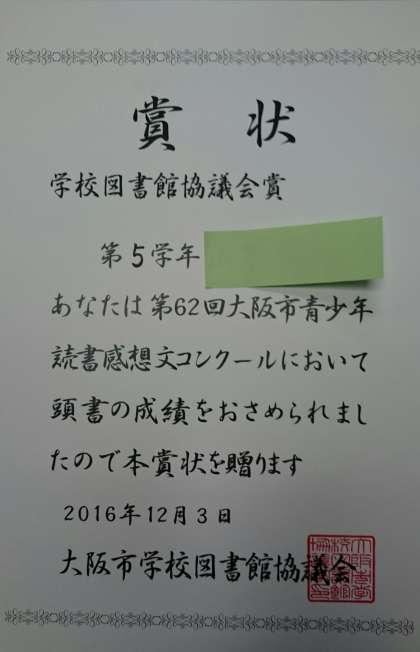 賞状
学校図書館協議会賞
第5学年
あなたは第62回大阪市青少年
読書感想文コンクールにおいて
頭書の成績をおさめられまし
たので本賞状を贈ります
2016年12月3日
大阪市学校図書館協議会